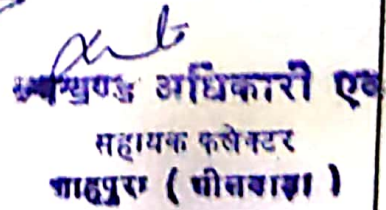 उपखण्ड अधिकारी एव
सहायक कलेक्टर
शाहपुरा ( भीलवाड़ा )